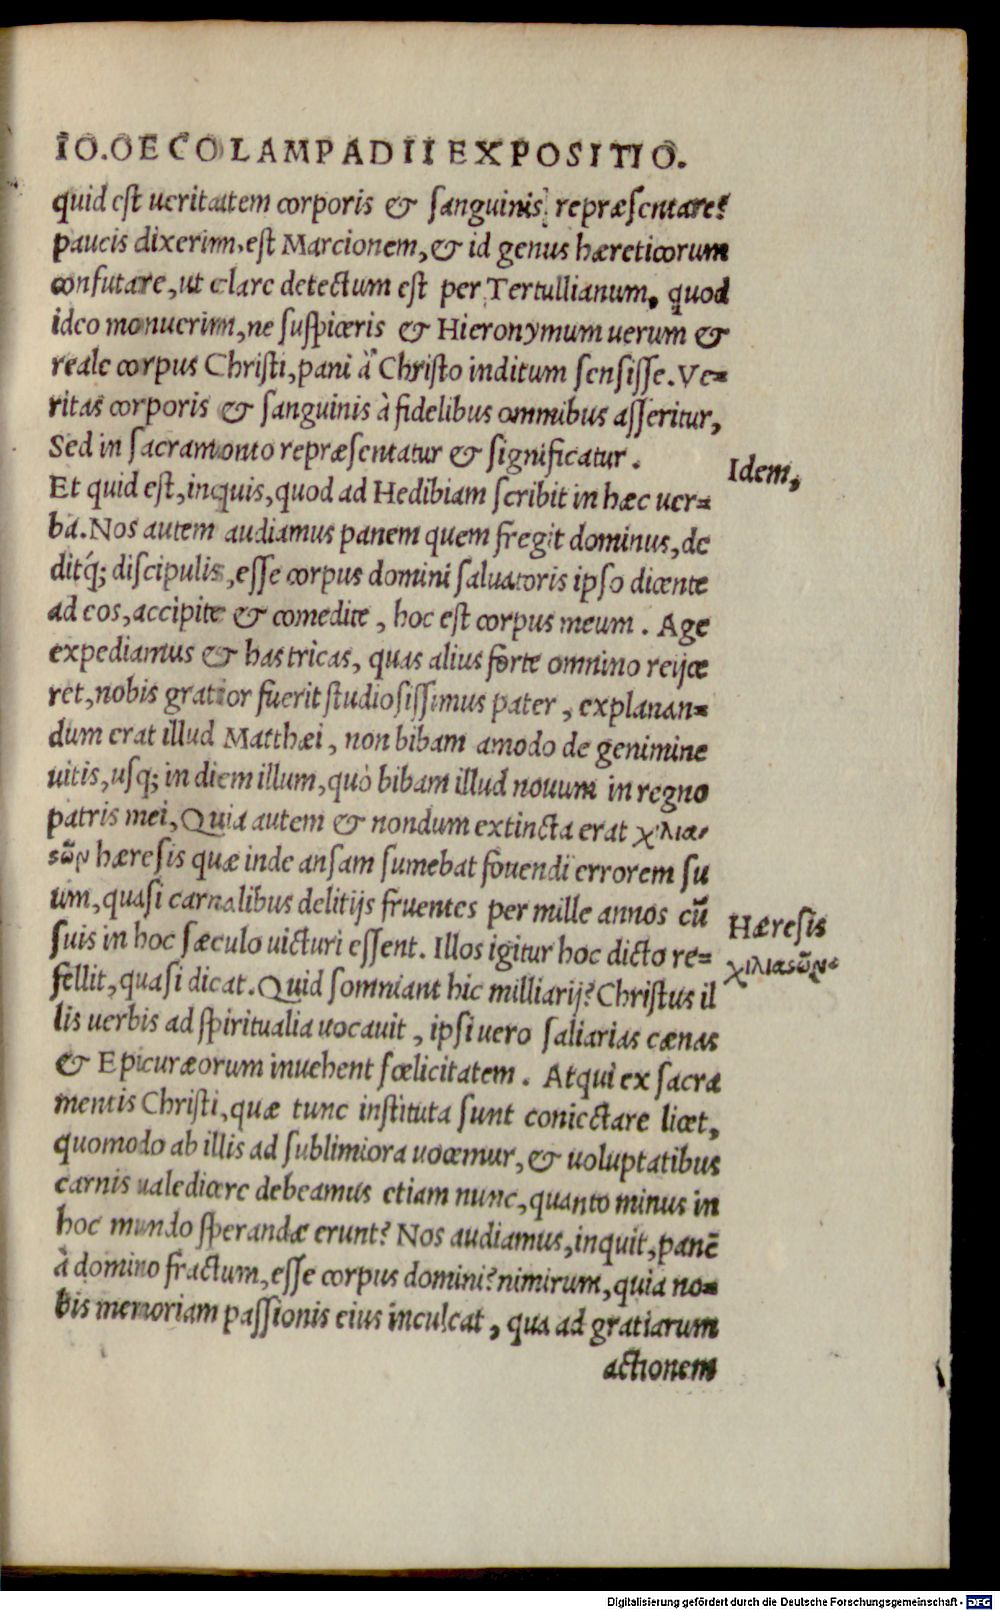 IO. OECOLAMPADII EXPOSITIO.
quid est ueritatem corporis & sanguinis repræsentare?
paucis dixerim, est Marcionem, & id genus hæreticorum
confutare, ut clare detectum est per Tertullianum, quod
ideo monuerim, ne suspiceris & Hieronymum uerum &
reale corpus Christi, pani à Christo inditum sensisse. Ve=
ritas corporis & sanguinis à fidelibus omnibus asseritur,
Sed in sacramento repræsentatur & significatur.
Idem,
Et quid est, inquis, quod ad Hedibiam scribit in hæc uer=
ba. Nos autem audiamus panem quem fregit dominus, de
ditq́; discipulis, esse corpus domini saluatoris ipso dicente
ad eos, accipite & comedite, hoc est corpus meum. Age
expediamus & has tricas, quas alius forte omnino reijce
ret, nobis gratior fuerit studiosissimus pater, explanan=
dum erat illud Matthæi, non bibam amodo de genimine
uitis, usq; in diem illum, quò bibam illud nouum in regno
patris mei, Quia autem & nondum extincta erat χιλια-
ϛῶν hæresis quæ inde ansam sumebat fouendi errorem su
um, quasi carnalibus delitijs fruentes per mille annos cū
Hæresis
suis in hoc sæculo uicturi essent. Illos igitur hoc dicto re=
χιλιαϛῶν.
fellit, quasi dicat. Quid somniant hic milliarij? Christus il
lis uerbis ad spiritualia uocauit, ipsi uero saliarias cænas
& Epicuræorum inuehent fœlicitatem. Atqui ex sacra
mentis Christi, quæ tunc instituta sunt coniectare licet,
quomodo ab illis ad sublimiora uocemur, & uoluptatibus
carnis ualedicere debeamus etiam nunc, quanto minus in
hoc mundo sperandæ erunt? Nos audiamus, inquit, panē
à domino fractum, esse corpus domini? nimirum, quia no=
bis memoriam passionis eius inculcat, qua ad gratiarum
actionem
Digitalisierung gefördert durch die Deutsche Forschungsgemeinschaft - DFG